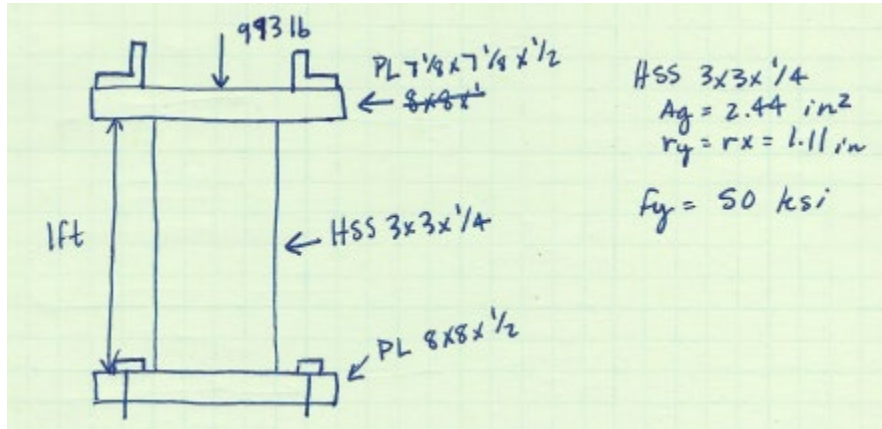 993 lb
PL 7 1/8 x 7 1/8 x 1/2
8x8x1
1ft
HSS 3x3x1/4
PL 8x8x1/2
HSS 3x3x1/4
Ag = 2.44 in²
ry = rx = 1.11 in
fy = 50 ksi